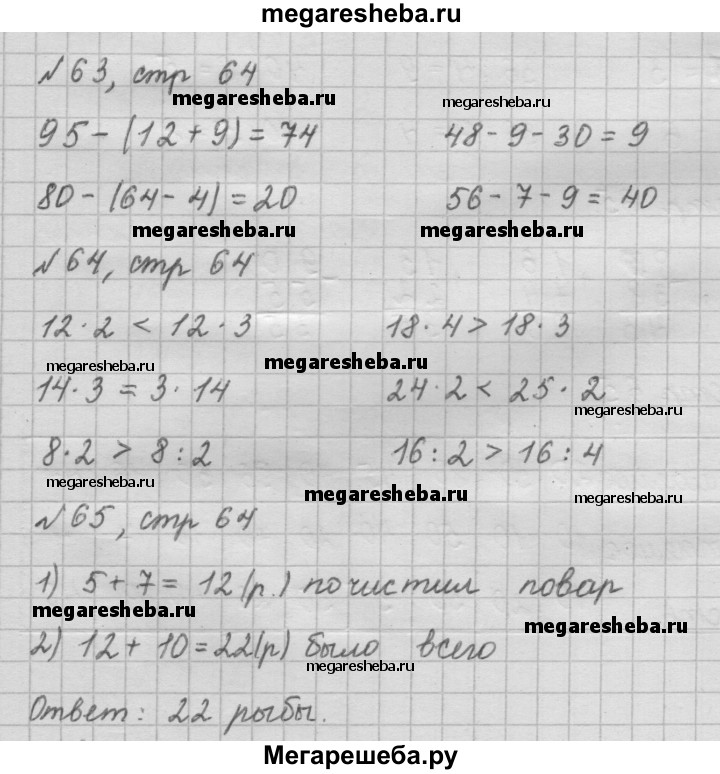 megaresheba.ru
№63, стр 64
megaresheba.ru megaresheba.ru
95-(12+9)=74 48-9-30=9
80-(64-4)=20 56-7-9=40
megaresheba.ru megaresheba.ru
№64, стр 64
12·2 < 12·3 18·4 > 18·3
megaresheba.ru megaresheba.ru
14·3 = 3·14 24·2 < 25·2
megaresheba.ru
8·2 > 8:2 16:2 > 16:4
megaresheba.ru megaresheba.ru megaresheba.ru
№65, стр 64
1) 5+7= 12(р.) почистил повар
megaresheba.ru megaresheba.ru
2) 12+10=22(р) было всего
megaresheba.ru
Ответ: 22 рыбы.
Мегарешеба.ру